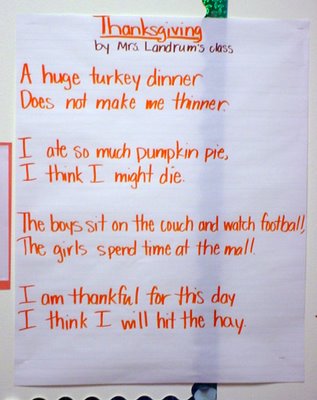 Thanksgiving
by Mrs. Landrum's class
A huge turkey dinner
Does not make me thinner.
I ate so much pumpkin pie,
I think I might die.
The boys sit on the couch and watch football,
The girls spend time at the mall.
I am thankful for this day
I think I will hit the hay.